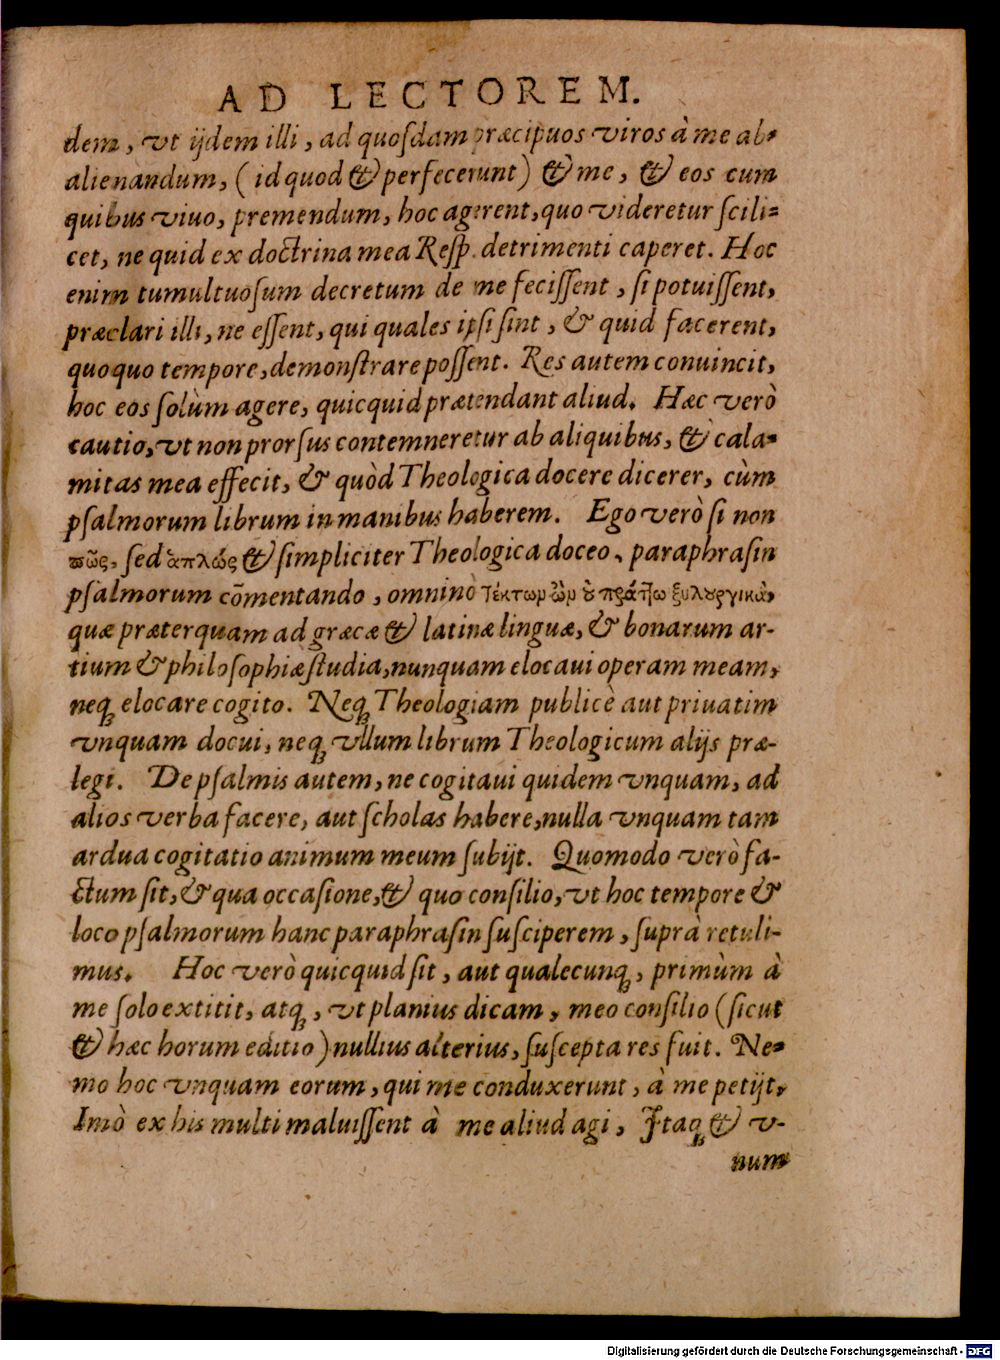 AD LECTOREM.
dem, vt ijdem illi, ad quoſdam præcipuos viros à me ab-
alienandum, (id quod & perfecerunt) & me, & eos cum
quibus viuo, premendum, hoc agerent, quo videretur ſcili=
cet, ne quid ex doctrina mea Reſp. detrimenti caperet. Hoc
enim tumultuoſum decretum de me feciſſent, ſi potuiſſent,
præclari illi, ne eſſent, qui quales ipſi ſint, & quid facerent,
quoquo tempore, demonſtrare poſſent. Res autem conuincit,
hoc eos ſolùm agere, quicquid prætendant aliud. Hæc verò
cautio, vt non prorſus contemneretur ab aliquibus, & cala-
mitas mea effecit, & quòd Theologica docere dicerer, cùm
pſalmorum librum in manibus haberem. Ego verò ſi non
πῶς, ſed ἁπλῶς & ſimpliciter Theologica doceo, paraphraſin
pſalmorum cōmentando, omninò τέκτωρ ὢν οὐ πράττω ξυλουργικὰ,
quæ præterquam ad græcæ & latinæ linguæ, & bonarum ar-
tium & philoſophiæ ſtudia, nunquam elocaui operam meam,
neq; elocare cogito. Neq; Theologiam publicè aut priuatim
vnquam docui, neq; vllum librum Theologicum alijs præ-
legi. De pſalmis autem, ne cogitaui quidem vnquam, ad
alios verba facere, aut ſcholas habere, nulla vnquam tam
ardua cogitatio animum meum ſubijt. Quomodo verò fa-
ctum ſit, & qua occaſione, & quo conſilio, vt hoc tempore &
loco pſalmorum hanc paraphraſin ſuſciperem, ſuprà retuli-
mus. Hoc verò quicquid ſit, aut qualecunq;, primùm à
me ſolo extitit, atq;, vt planius dicam, meo conſilio (ſicut
& hæc horum editio) nullius alterius, ſuſcepta res fuit. Ne-
mo hoc vnquam eorum, qui me conduxerunt, à me petijt,
Imò ex his multi maluiſſent à me aliud agi, Itaq; & v-
num
Digitalisierung gefördert durch die Deutsche Forschungsgemeinschaft - DFG